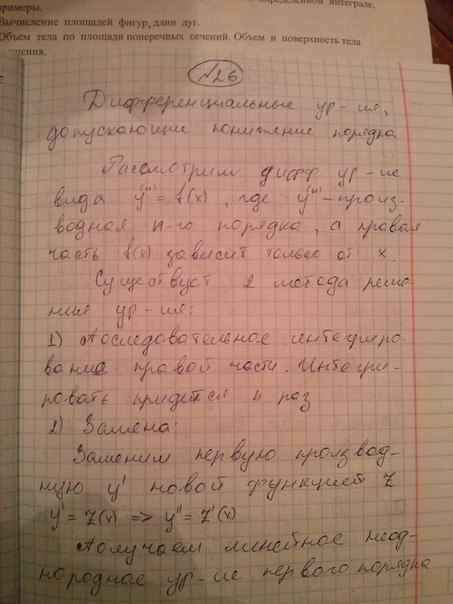 примеры.
Вычисление площадей фигур, длин дуг.
Объем тела по площади поперечных сечений. Объем и поверхность тела
№26
Дифференциальные ур-ия,
допускающие понижение порядка
Рассмотрим дифф ур-ие
вида y⁽ⁿ⁾ = f(x), где y⁽ⁿ⁾ - произ-
водная n-го порядка, а правая
часть f(x) зависит только от x.
Существует 2 метода реше-
ния ур-ия:
1) Последовательное интегриро-
вание правой части. Интегри-
ровать придется n раз
2) Замена:
Заменим первую производ-
ную y' новой функцией z
y' = z(x) => y'' = z'(x)
Получаем линейное неод-
нородное ур-ие первого порядка